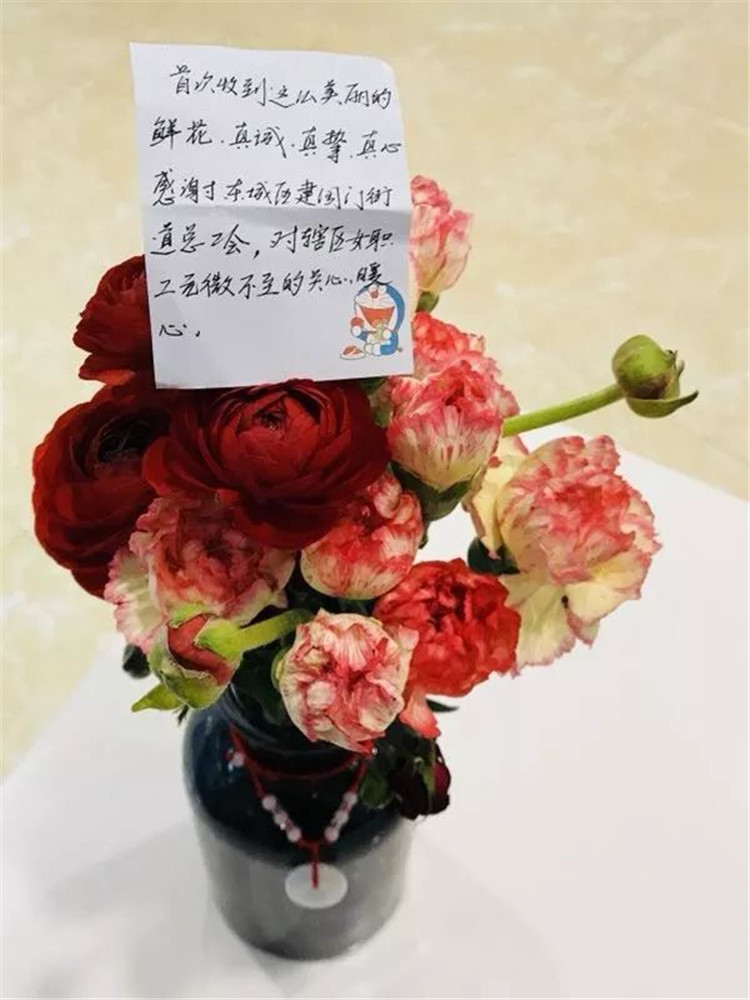 首次收到这么美丽的
鲜花.真诚.真挚.真心
感谢于东城区建国门街
道总工会,对辖区女职
工无微不至的关心、暖
心。